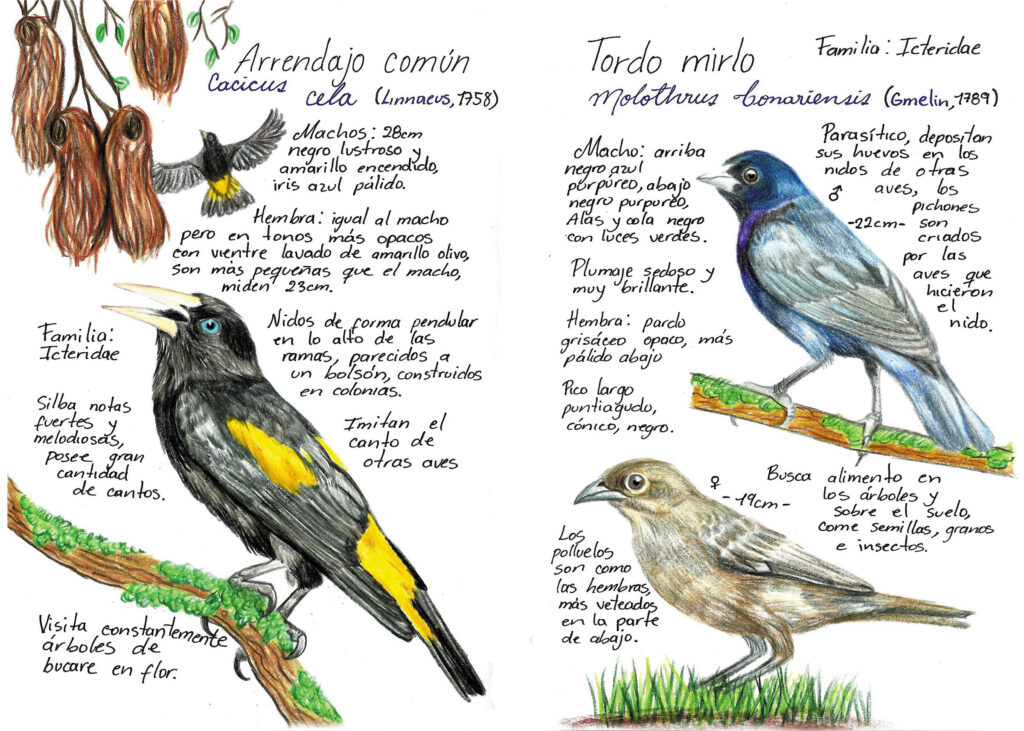 Arrendajo común
Cacicus
cela (Linnaeus, 1758)
Machos: 28cm
negro lustroso y
amarillo encendido,
iris azul pálido.
Hembra: igual al macho
pero en tonos más opacos
con vientre lavado de amarillo olivo,
son más pequeñas que el macho,
miden 23cm.
Familia:
Icteridae
Nidos de forma pendular
en lo alto de las
ramas, parecidos a
un bolsón, construidos
en colonias.
Silba notas
fuertes y
melodiosas,
posee gran
cantidad
de cantos.
Imitan el
canto de
otras aves
Visita constantemente
árboles de
bucare en flor.
Tordo mirlo
Familia: Icteridae
Molothrus bonariensis (Gmelin, 1789)
Macho: arriba
negro azul
purpúreo, abajo
negro purpureo,
Alas y cola negro
con luces verdes.
Plumaje sedoso y
muy brillante.
Hembra: pardo
grisáceo opaco, más
pálido abajo
Pico largo
puntiagudo,
cónico, negro.
Parasítico, depositan
sus huevos en los
nidos de otras
aves, los
pichones
son
criados
por las
aves que
hicieron
el
nido.
♂
-22cm-
♀
-19cm-
Busca alimento en
los árboles y
sobre el suelo,
come semillas, granos
e insectos.
Los
polluelos
son como
las hembras,
más veteados
en la parte
de abajo.